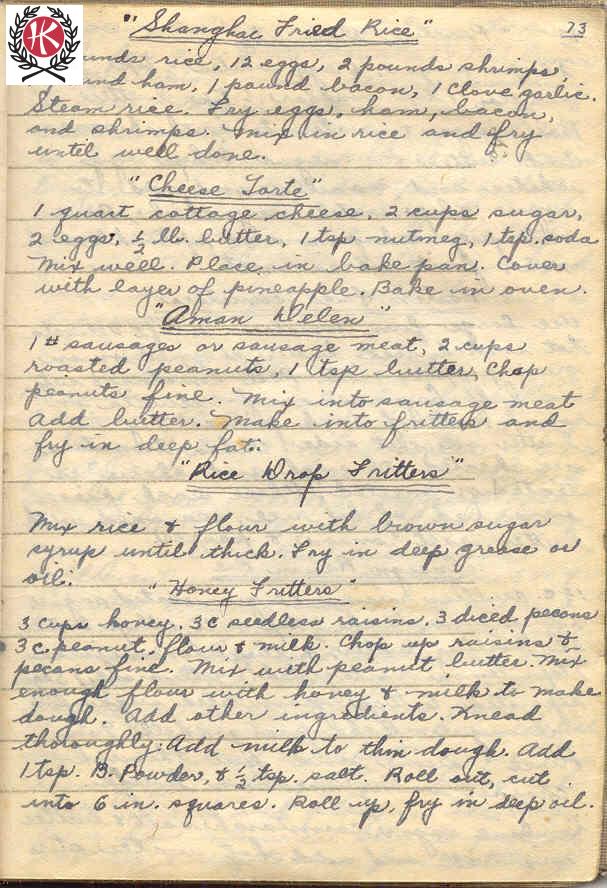 "Shanghai Fried Rice"
73
unds rice, 12 eggs, 2 pounds shrimps,
und ham, 1 pound bacon, 1 clove garlic.
Steam rice. Fry eggs, ham, bacon,
and shrimps. Mix in rice and fry
until well done.
"Cheese Torte"
1 quart cottage cheese, 2 cups sugar,
2 eggs, ½ lb. butter, 1 tsp nutmeg, 1 tsp. soda
Mix well. Place in bake pan. Cover
with layer of pineapple. Bake in oven.
"Aman Delen"
1 # sausages or sausage meat, 2 cups
roasted peanuts, 1 tsp butter, Chop
peanuts fine. Mix into sausage meat
add butter. Make into fritters and
fry in deep fat.
"Rice Drop Fritters"
Mix rice & flour with brown sugar
syrup until thick. Fry in deep grease or
oil.
"Honey Fritters"
3 cups honey, 3 c seedless raisins, 3 diced pecans
3 c. peanut, flour & milk. Chop up raisins &
pecans fine. Mix with peanut butter. Mix
enough flour with honey & milk to make
dough. Add other ingredients. Knead
thoroughly. Add milk to thin dough. Add
1 tsp. B. Powder, & ½ tsp. salt. Roll out, cut
into 6 in. squares. Roll up, fry in deep oil.
HK